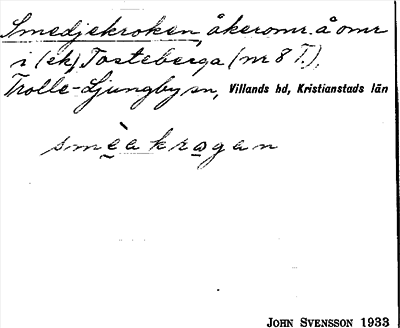 Smedjekroken, åkeromr. å omr
i (ek) Tosteberga (nr 8 T.),
Trolle-Ljungby sn, Villands hd, Kristianstads län
smèakrogan
JOHN SVENSSON 1933